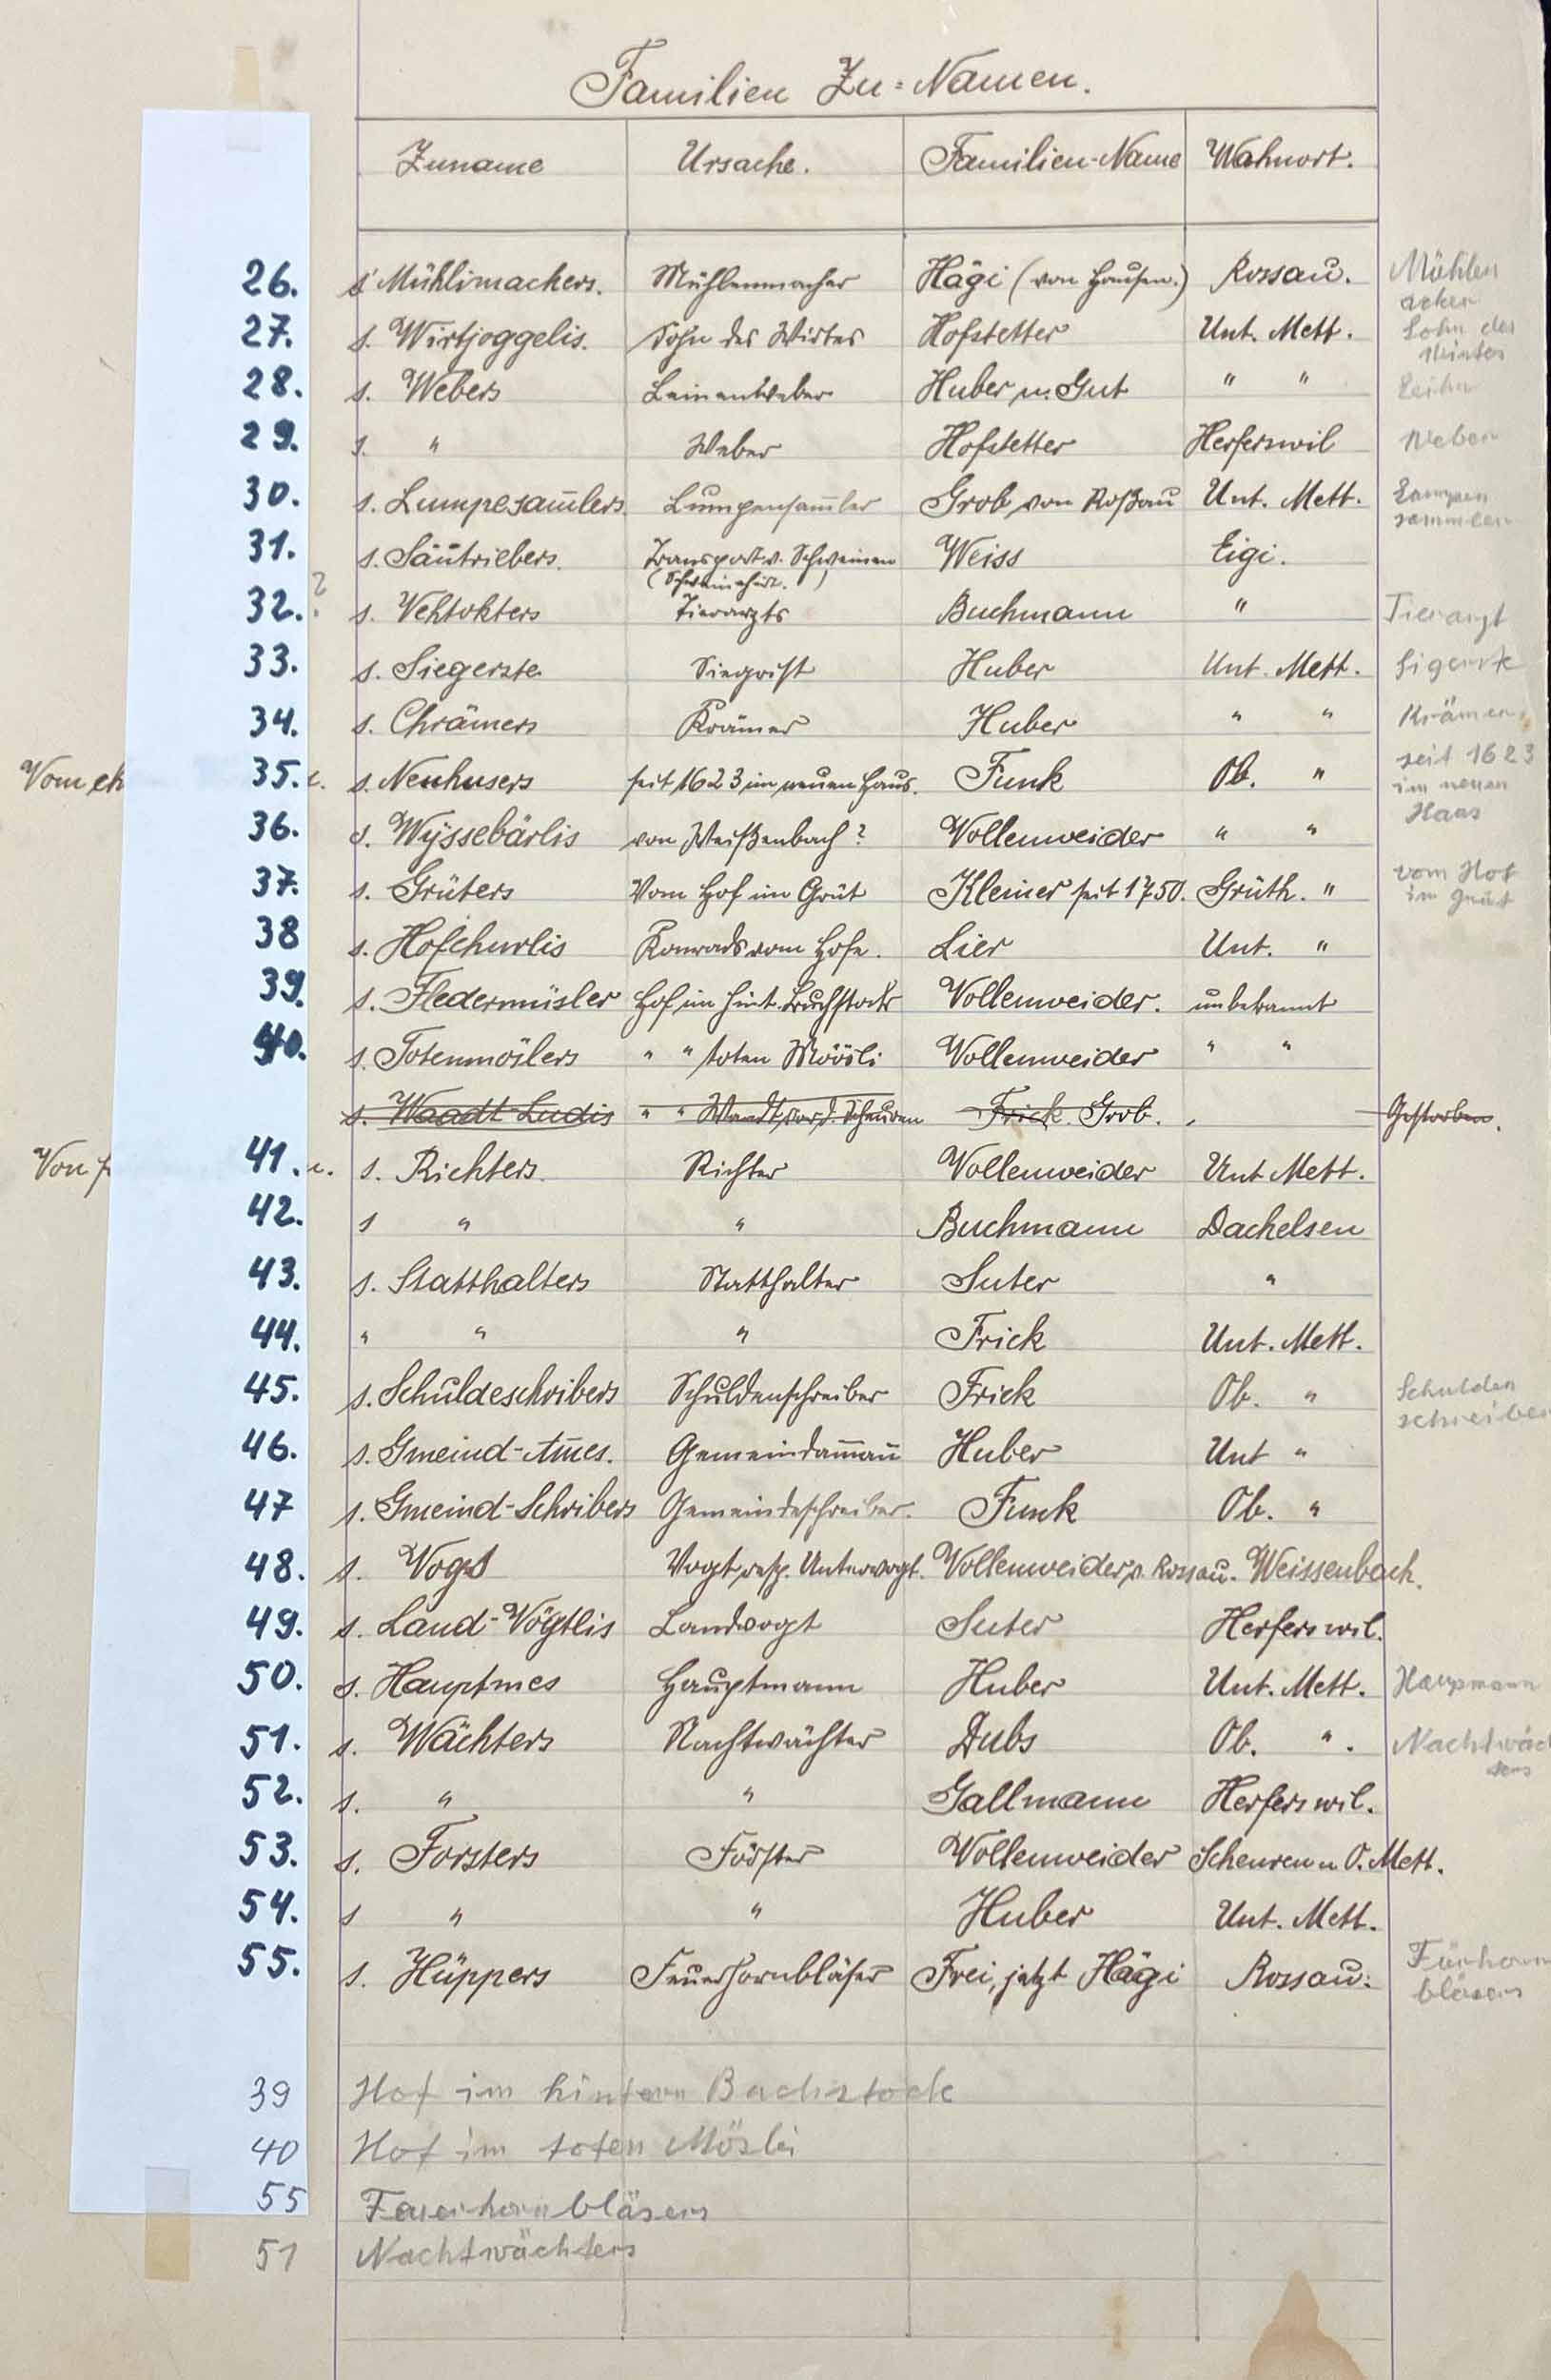 Familien Zu=Namen.
Zuname Ursache. Familien-Name Wahnort.
26. s' Mühlimachers. Mühlenmacher Hägi (von Hausen.) Rossau. Mühlen
acher
27. s. Wirtjoggelis. Sohn des Wirtes Hofstetter Unt. Mett. Sohn des
Wirtes
28. s. Webers Leinenweber Huber u. Gut " "
29. s. " Weber Hofstetter Herferswil Weber
30. s. Lumpesam̄lers Lumpensam̄ler Grob von Roßau Unt. Mett. Lumpen
sammlers
31. s. Säutriebers. Transport v. Schweinen Weiss Eigi.
(Schweinehirt.)
32. ? s. Vehtokters Tierarzts Buchmann " Tierarzt
33. s. Siegerste Siegrist Huber Unt. Mett. Sigerste
34. s. Chrämers Krämer Huber " " Krämers
Vom eh 35. s. Neuhusers seit 1623 im neuen Haus. Funk Ob. " seit 1623
im neuen
Haus
36. s. Wyssebärlis von Weißenbach? Vollenweider " "
37. s. Grüters Vom Hof im Grüt Kleiner seit 1750. Grüth. " vom Hof
im Grüt
38 s. Hofchurlis Konrads vom Hofe. Lier Unt. "
39. s. Fledermüsler Hof im hint. Buchstock Vollenweider. unbekannt
40. s. Totenmöslers " " toten Möösli Vollenweider " "
s. Waadt-Ludis " " Waadt vor d. Scheuren Frick. Grob. Gestorben.
Von 41. s. Richters. Richter Vollenweider Unt Mett.
42. s " " Buchmann Dachelsen
43. s. Statthalters Statthalter Suter "
44. " " " Frick Unt. Mett.
45. s. Schuldeschribers Schuldenschreiber Frick Ob. " Schulden
schreiber
46. s. Gmeind-Am̄es. Gemeindam̄an̄ Huber Unt "
47 s. Gmeind-Schribers Gemeindeschreiber. Funk Ob. "
48. s. Vogts Vogt resp. Untervogt. Vollenweider v. Rossau. Weissenbach.
49. s. Land-Vögtlis Landvogt Suter Herferswil.
50. s. Hauptmes Hauptmann Huber Unt. Mett. Haupmann
51. s. Wächters Nachtwächter Dubs Ob. ". Nachtwäch
ters
52. s. " " Gallmann Herferswil.
53. s. Forsters Förster Vollenweider Scheuren u O. Mett.
54. s " " Huber Unt. Mett.
55. s. Hüppers Feuerhornbläser Frei, jetzt Hägi Rossau. Fürhorn
bläsers
39 Hof im hintern Buchstock
40 Hof im toten Mösli
55 Feuerhornbläsers
51 Nachtwächters